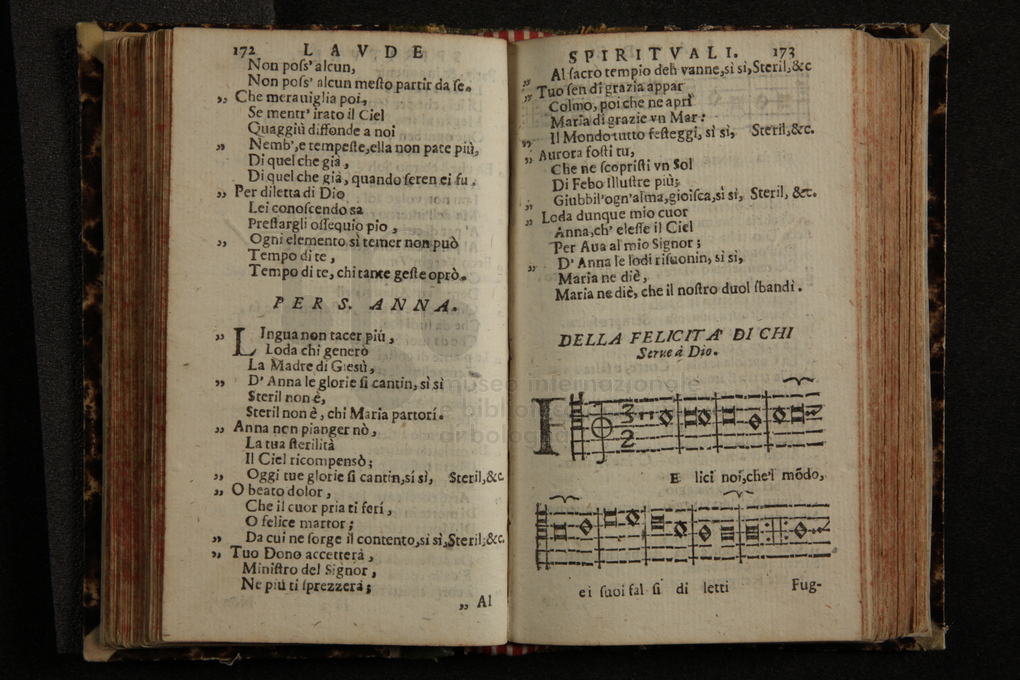 172 LAVDE
Non poſs' alcun,
Non poſs' alcun meſto partir da ſe.
„ Che merauiglia poi,
Se mentr' irato il Ciel
Quaggiù diffonde a noi
„ Nemb', e tempeſte, ella non pate più,
Di quel che già,
Di quel che già, quando ſeren ei fu.
„ Per diletta di Dio
Lei conoſcendo sa
Preſtargli oſſequio pio,
„ Ogni elemento sì temer non può
Tempo di te,
Tempo di te, chi tante geſte oprò.
PER S. ANNA.
„ LIngua non tacer più,
Loda chi generò
La Madre di Giesù,
„ D' Anna le glorie ſi cantin, sì sì
Steril non è,
Steril non è, chi Maria partorí.
„ Anna non pianger nò,
La tua ſterilità
Il Ciel ricompensò;
„ Oggi tue glorie ſi cantin, sí sì, Steril,&c.
„ O beato dolor,
Che il cuor pria ti ferí,
O felice martor;
„ Da cui ne ſorge il contento, si sì, Steril;&c.
„ Tuo Dono accetterà,
Miniſtro del Signor,
Ne più ti ſprezzerà;
„ Al
SPIRITVALI. 173
„ Al ſacro tempio deh vanne, sì sì, Steril,&c
„ Tuo ſen di grazia appar
Colmo, poi che ne aprì
Maria di grazie vn Mar:
„ Il Mondo tutto feſteggi, sì sì, Steril,&c.
„ Aurora foſti tu,
Che ne ſcopriſti vn Sol
Di Febo Illuſtre più;
„ Giubbil'ogn'alma, gioiſca, sì sì, Steril, &c.
„ Loda dunque mio cuor
Anna, ch' eleſſe il Ciel
Per Aua al mio Signor;
„ D' Anna le lodi riſuonin, sì sì,
Maria ne diè,
Maria ne diè, che il noſtro duol ſbandì.
DELLA FELICITA' DI CHI
Serue à Dio.
F E lici noi, che'l mõdo,
e i ſuoi fal ſi di letti Fug-
museo internazionale
e biblioteca
bologna